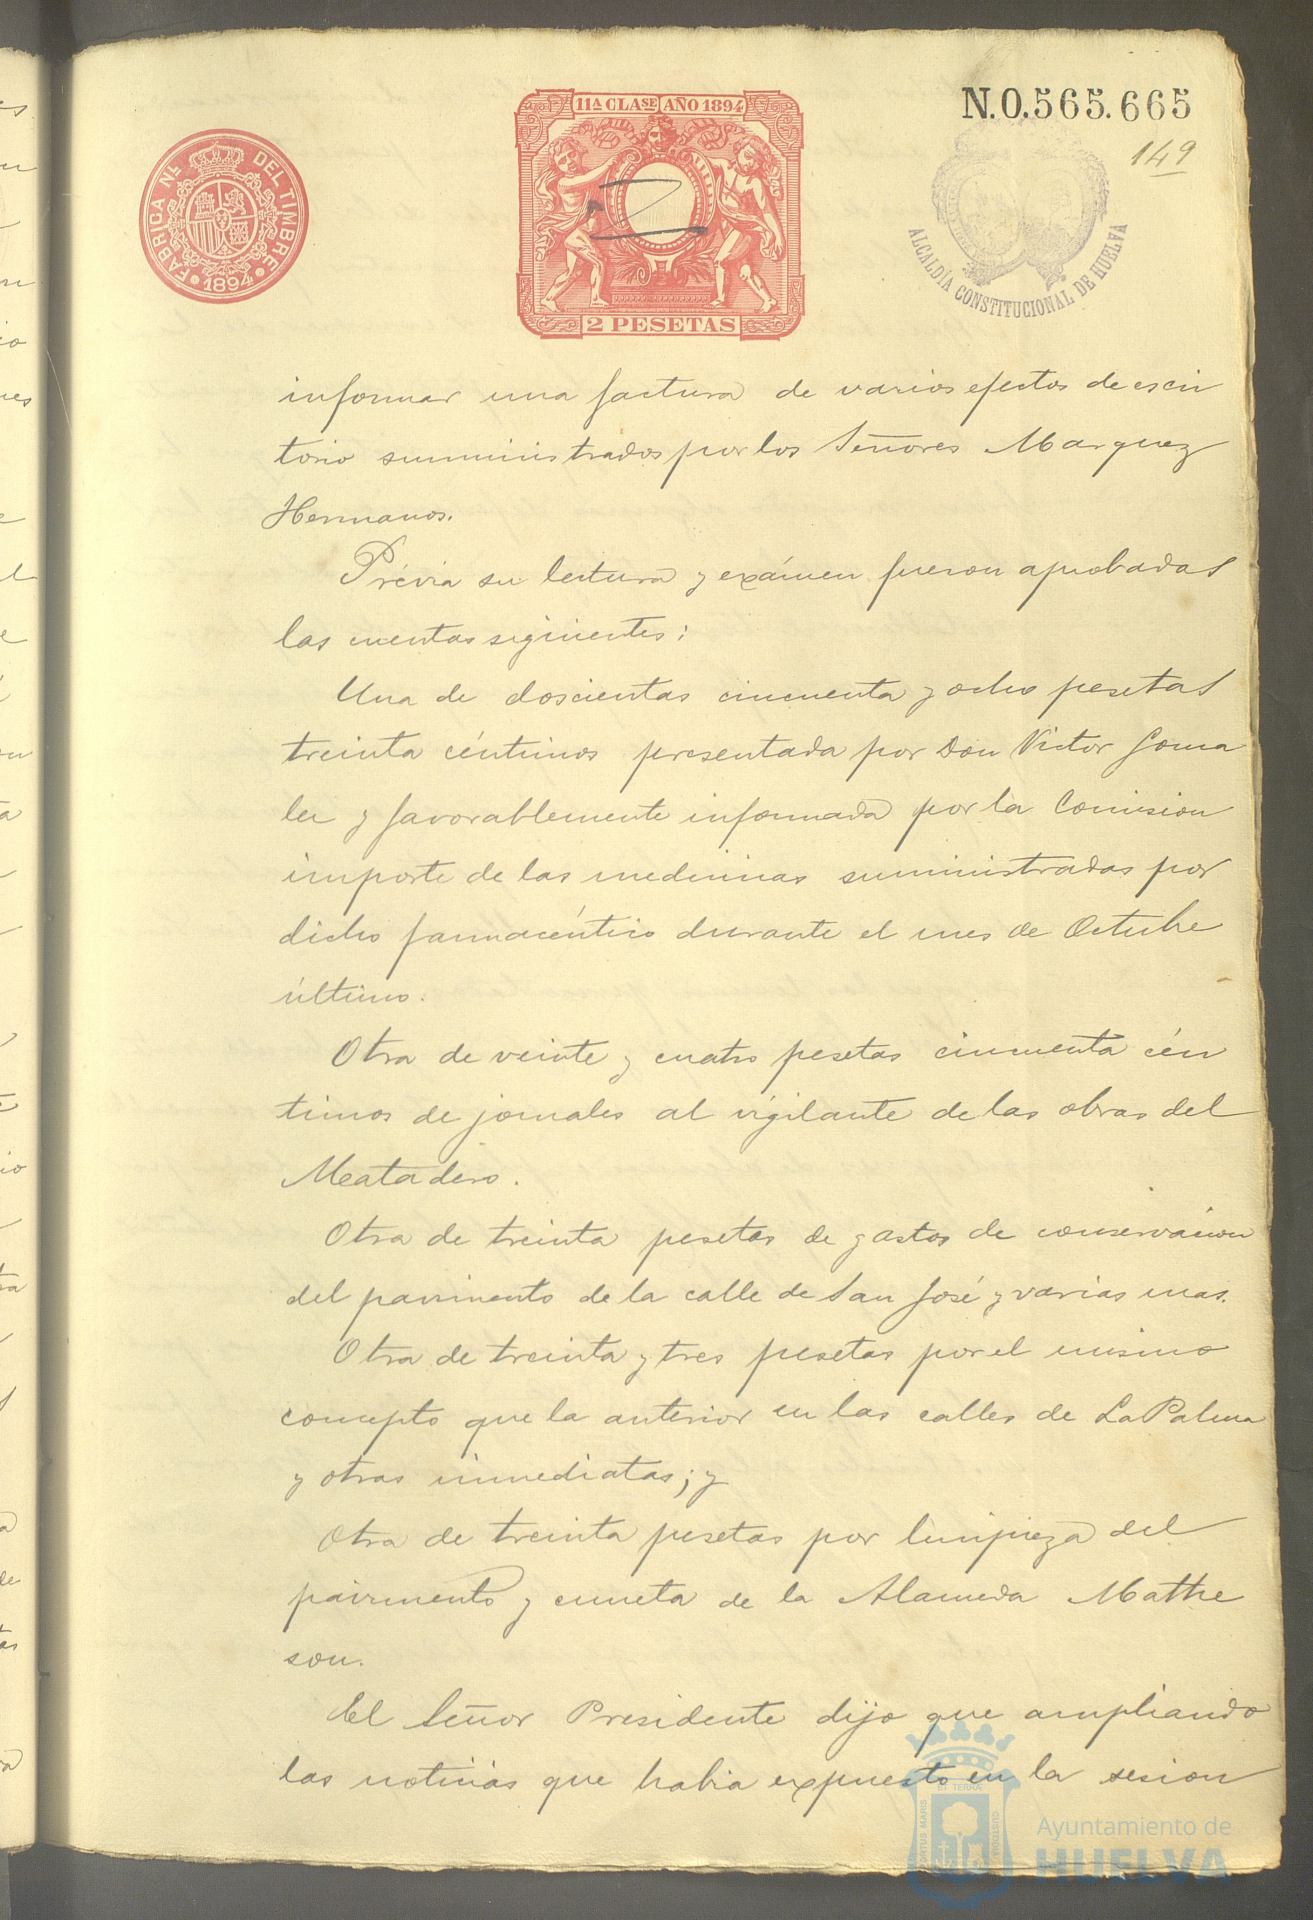 11ª CLASE AÑO 1894
N.0.565.665
149
FABRICA NL. DEL TIMBRE
1894
2 PESETAS
ALCALDÍA CONSTITUCIONAL DE HUELVA
informar una factura de varios efectos de escri
torio sumministrados por los Señores Marquez
Hermanos.
Prévia su lectura y exámen fueron aprobadas
las cuentas siguientes:
Una de doscientas cincuenta y ocho pesetas
treinta céntimos presentada por Don Victor Gonza
lez y favorablemente informada por la Comision
importe de las medicinas suministradas por
dicho farmacéutico durante el mes de Octubre
último.
Otra de veinte y cuatro pesetas cincuenta cén
timos de jornales al vigilante de las obras del
Matadero.
Otra de treinta pesetas de gastos de conservacion
del pavimento de la calle de San José y varias mas.
Otra de treinta y tres pesetas por el mismo
concepto que la anterior en las calles de La Palma
y otras inmediatas; y
Otra de treinta pesetas por limpieza del
pavimento y cuneta de la Alameda Mathe
son.
El Señor Presidente dijo que ampliando
las noticias que habia expuesto en la sesion
PORTUS MARIS ET TERRAE CUSTODIA
Ayuntamiento de
HUELVA